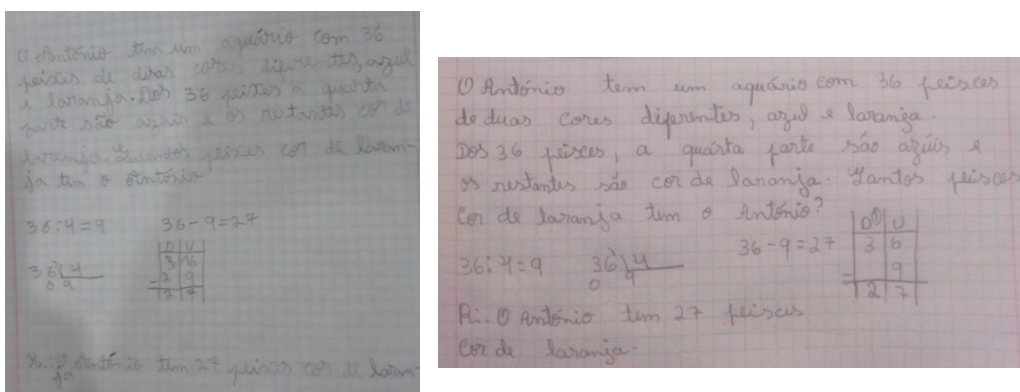 O António tem um aquário com 36
peixes de duas cores diferentes, azul
e laranja. Dos 36 peixes a quarta
parte são azuis e os restantes cor de
laranja. Quantos peixes cor de laran-
ja tem o António
36:4=9 36-9=27
D U
36 4
3 16
0 9
2 9
2 7
R.: O António tem 27 peixes cor de laran-
ja
O António tem um aquário com 36 peisces
de duas cores diferentes, azul e laranja.
Dos 36 peisces, a quárta parte são azúis e
os restantes são cor de laranja. Qantos peisces
cor de laranja tem o António?
D U
36:4=9 36 4 36-9=27
3 6
0 9
9
2 7
R.: O António tem 27 peisces
cor de laranja.